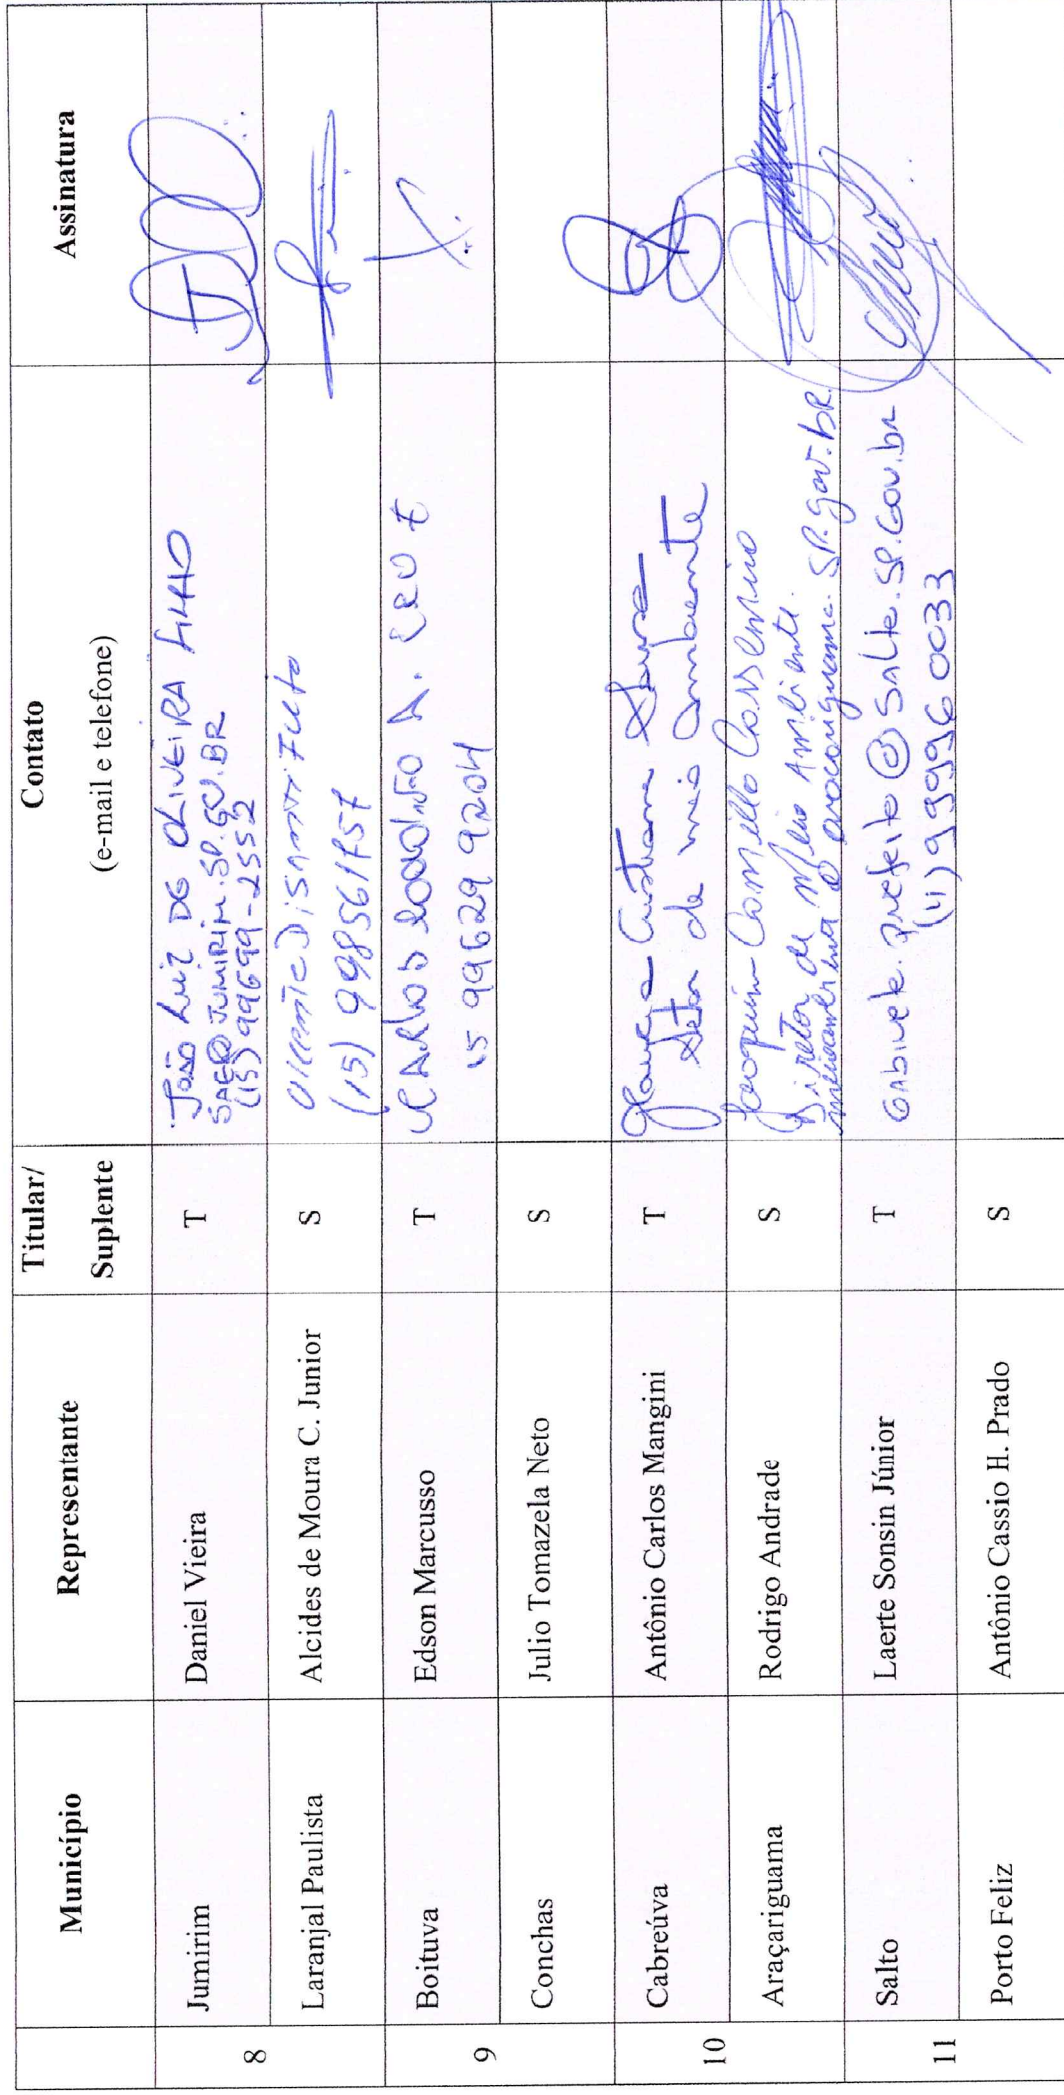 Município Representante Titular/ Suplente Contato (e-mail e telefone) Assinatura
8
Jumirim Daniel Vieira T
João Luiz DE OLIVEIRA FILHO
SAEO JUMIRIM.SP.GOV.BR
(15) 99699-2552
Laranjal Paulista Alcides de Moura C. Junior S
(15) 998561757
9
Boituva Edson Marcusso T
CARLOS
15 99629 9204
Conchas Julio Tomazela Neto S
10
Cabreúva Antônio Carlos Mangini T
Cristiane
Setor de meio ambiente
Araçariguama Rodrigo Andrade S
Joaquim Camillo
Diretor de Meio Ambiente.
@ aracariguama.SP.gov.bR.
11
Salto Laerte Sonsin Júnior T
GABINETE.prefeito@SALTO.SP.Gov.br
(11) 99996 0033
Porto Feliz Antônio Cassio H. Prado S